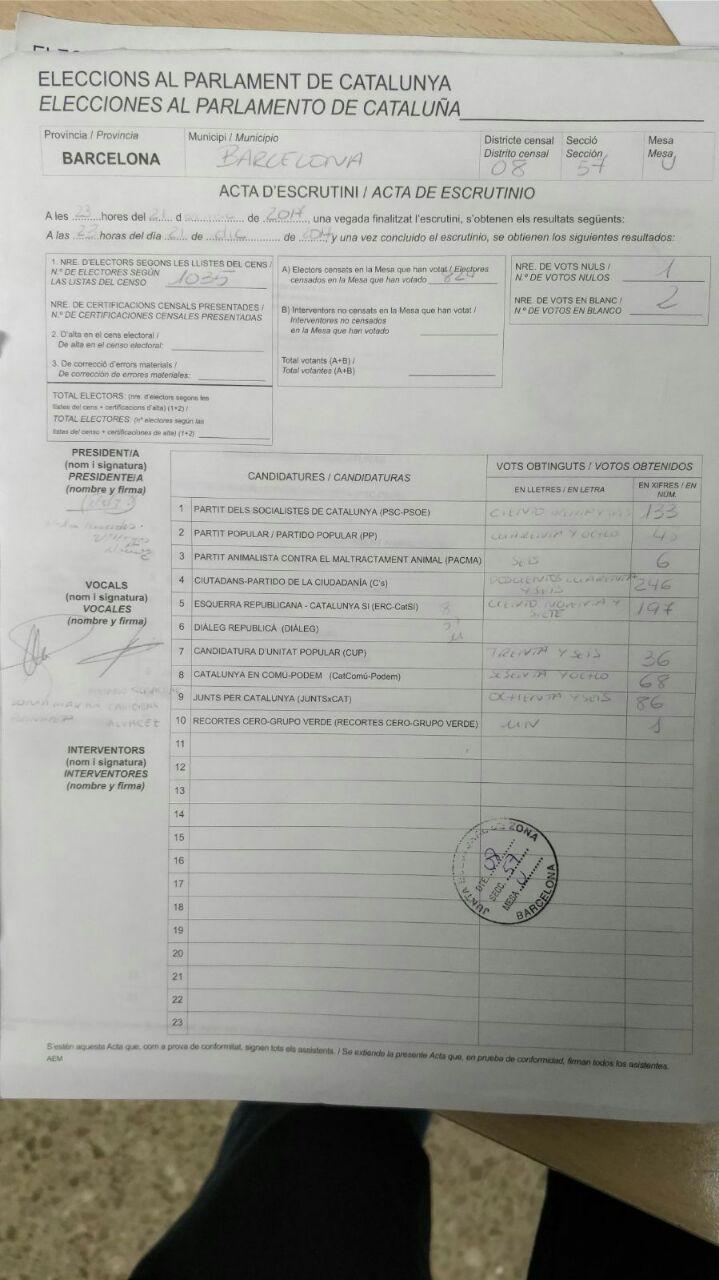 ELECCIONS AL PARLAMENT DE CATALUNYA
ELECCIONES AL PARLAMENTO DE CATALUÑA
Província / Provincia
BARCELONA
Municipi / Municipio
BARCELONA
Districte censal
Distrito censal
08
Secció
Sección
57
Mesa
Mesa
U
ACTA D'ESCRUTINI / ACTA DE ESCRUTINIO
A les 23 hores del 21 d de 2017, una vegada finalitzat l'escrutini, s'obtenen els resultats següents:
A las 23 horas del día 21 de dic de 2017 y una vez concluido el escrutinio, se obtienen los siguientes resultados:
1. NRE. D'ELECTORS SEGONS LES LLISTES DEL CENS /
N.º DE ELECTORES SEGÚN
LAS LISTAS DEL CENSO 1035
NRE. DE CERTIFICACIONS CENSALS PRESENTADES /
N.º DE CERTIFICACIONES CENSALES PRESENTADAS
2. D'alta en el cens electoral /
De alta en el censo electoral:
3. De correcció d'errors materials /
De corrección de errores materiales:
TOTAL ELECTORS: (nre. d'electors segons les
llistes del cens + certificacions d'alta) (1+2) /
TOTAL ELECTORES: (nº electores según las
listas del censo + certificaciones de alta) (1+2)
A) Electors censats en la Mesa que han votat / Electores
censados en la Mesa que han votado 824
B) Interventors no censats en la Mesa que han votat /
Interventores no censados
en la Mesa que han votado
Total votants (A+B) /
Total votantes (A+B)
NRE. DE VOTS NULS /
N.º DE VOTOS NULOS 1
NRE. DE VOTS EN BLANC /
N.º DE VOTOS EN BLANCO 2
PRESIDENT/A
(nom i signatura)
PRESIDENTE/A
(nombre y firma)
VOCALS
(nom i signatura)
VOCALES
(nombre y firma)
INTERVENTORS
(nom i signatura)
INTERVENTORES
(nombre y firma)
CANDIDATURES / CANDIDATURAS
VOTS OBTINGUTS / VOTOS OBTENIDOS
EN LLETRES / EN LETRA
EN XIFRES / EN NÚM.
1 PARTIT DELS SOCIALISTES DE CATALUNYA (PSC-PSOE) CIENTO 133
2 PARTIT POPULAR / PARTIDO POPULAR (PP) CUARENTA Y OCHO
3 PARTIT ANIMALISTA CONTRA EL MALTRACTAMENT ANIMAL (PACMA) SEIS 6
4 CIUTADANS-PARTIDO DE LA CIUDADANÍA (C's) DOSCIENTOS CUARENTA Y SEIS 246
5 ESQUERRA REPUBLICANA - CATALUNYA SÍ (ERC-CatSí) CIENTO NOVENTA Y SIETE 197
6 DIÀLEG REPUBLICÀ (DIÀLEG)
7 CANDIDATURA D'UNITAT POPULAR (CUP) TREINTA Y SEIS 36
8 CATALUNYA EN COMÚ-PODEM (CatComú-Podem) SESENTA Y OCHO 68
9 JUNTS PER CATALUNYA (JUNTSxCAT) OCHENTA Y SEIS 86
10 RECORTES CERO-GRUPO VERDE (RECORTES CERO-GRUPO VERDE) UN 1
11
12
13
14
15
16
17
18
19
20
21
22
23
JUNTA ZONA BARCELONA
DTE. 08
SECC. 57
MESA U
S'estén aquesta Acta que, com a prova de conformitat, signen tots els assistents. / Se extiende la presente Acta que, en prueba de conformidad, firman todos los asistentes.
AEM